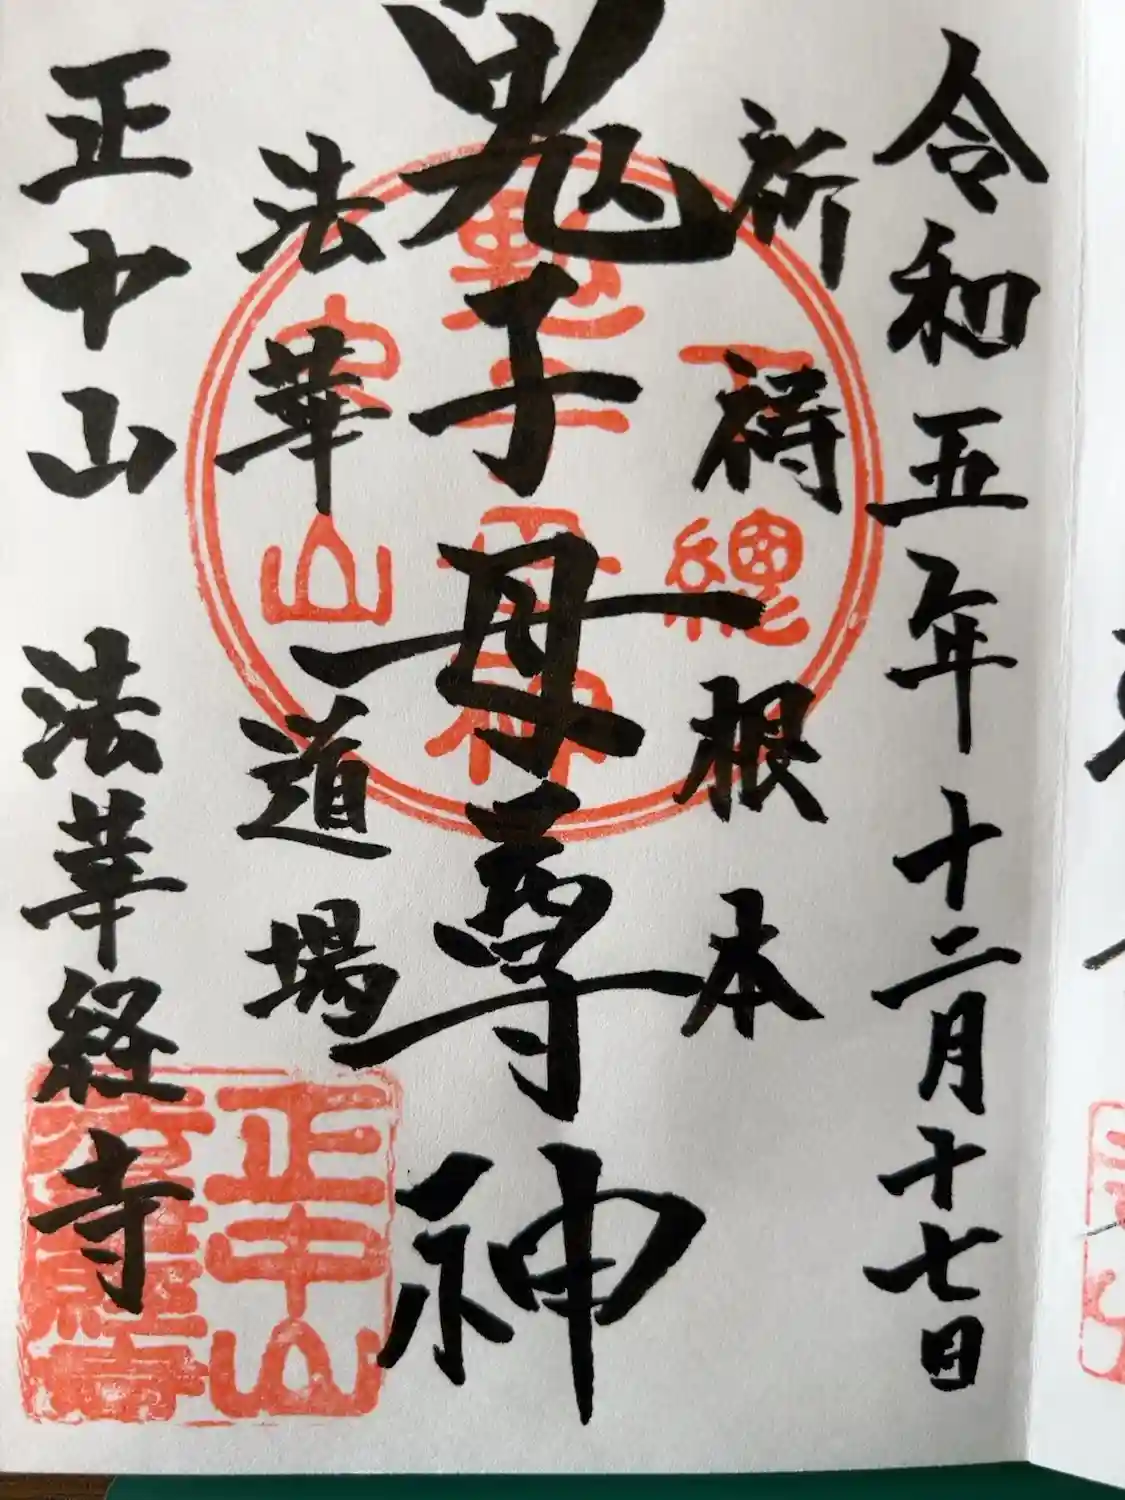 令和五年十二月十七日
祈祷根本
鬼子母尊神
法華道場
正中山 法華経寺
下總
鬼子母尊神
中山
正中山
法華経寺